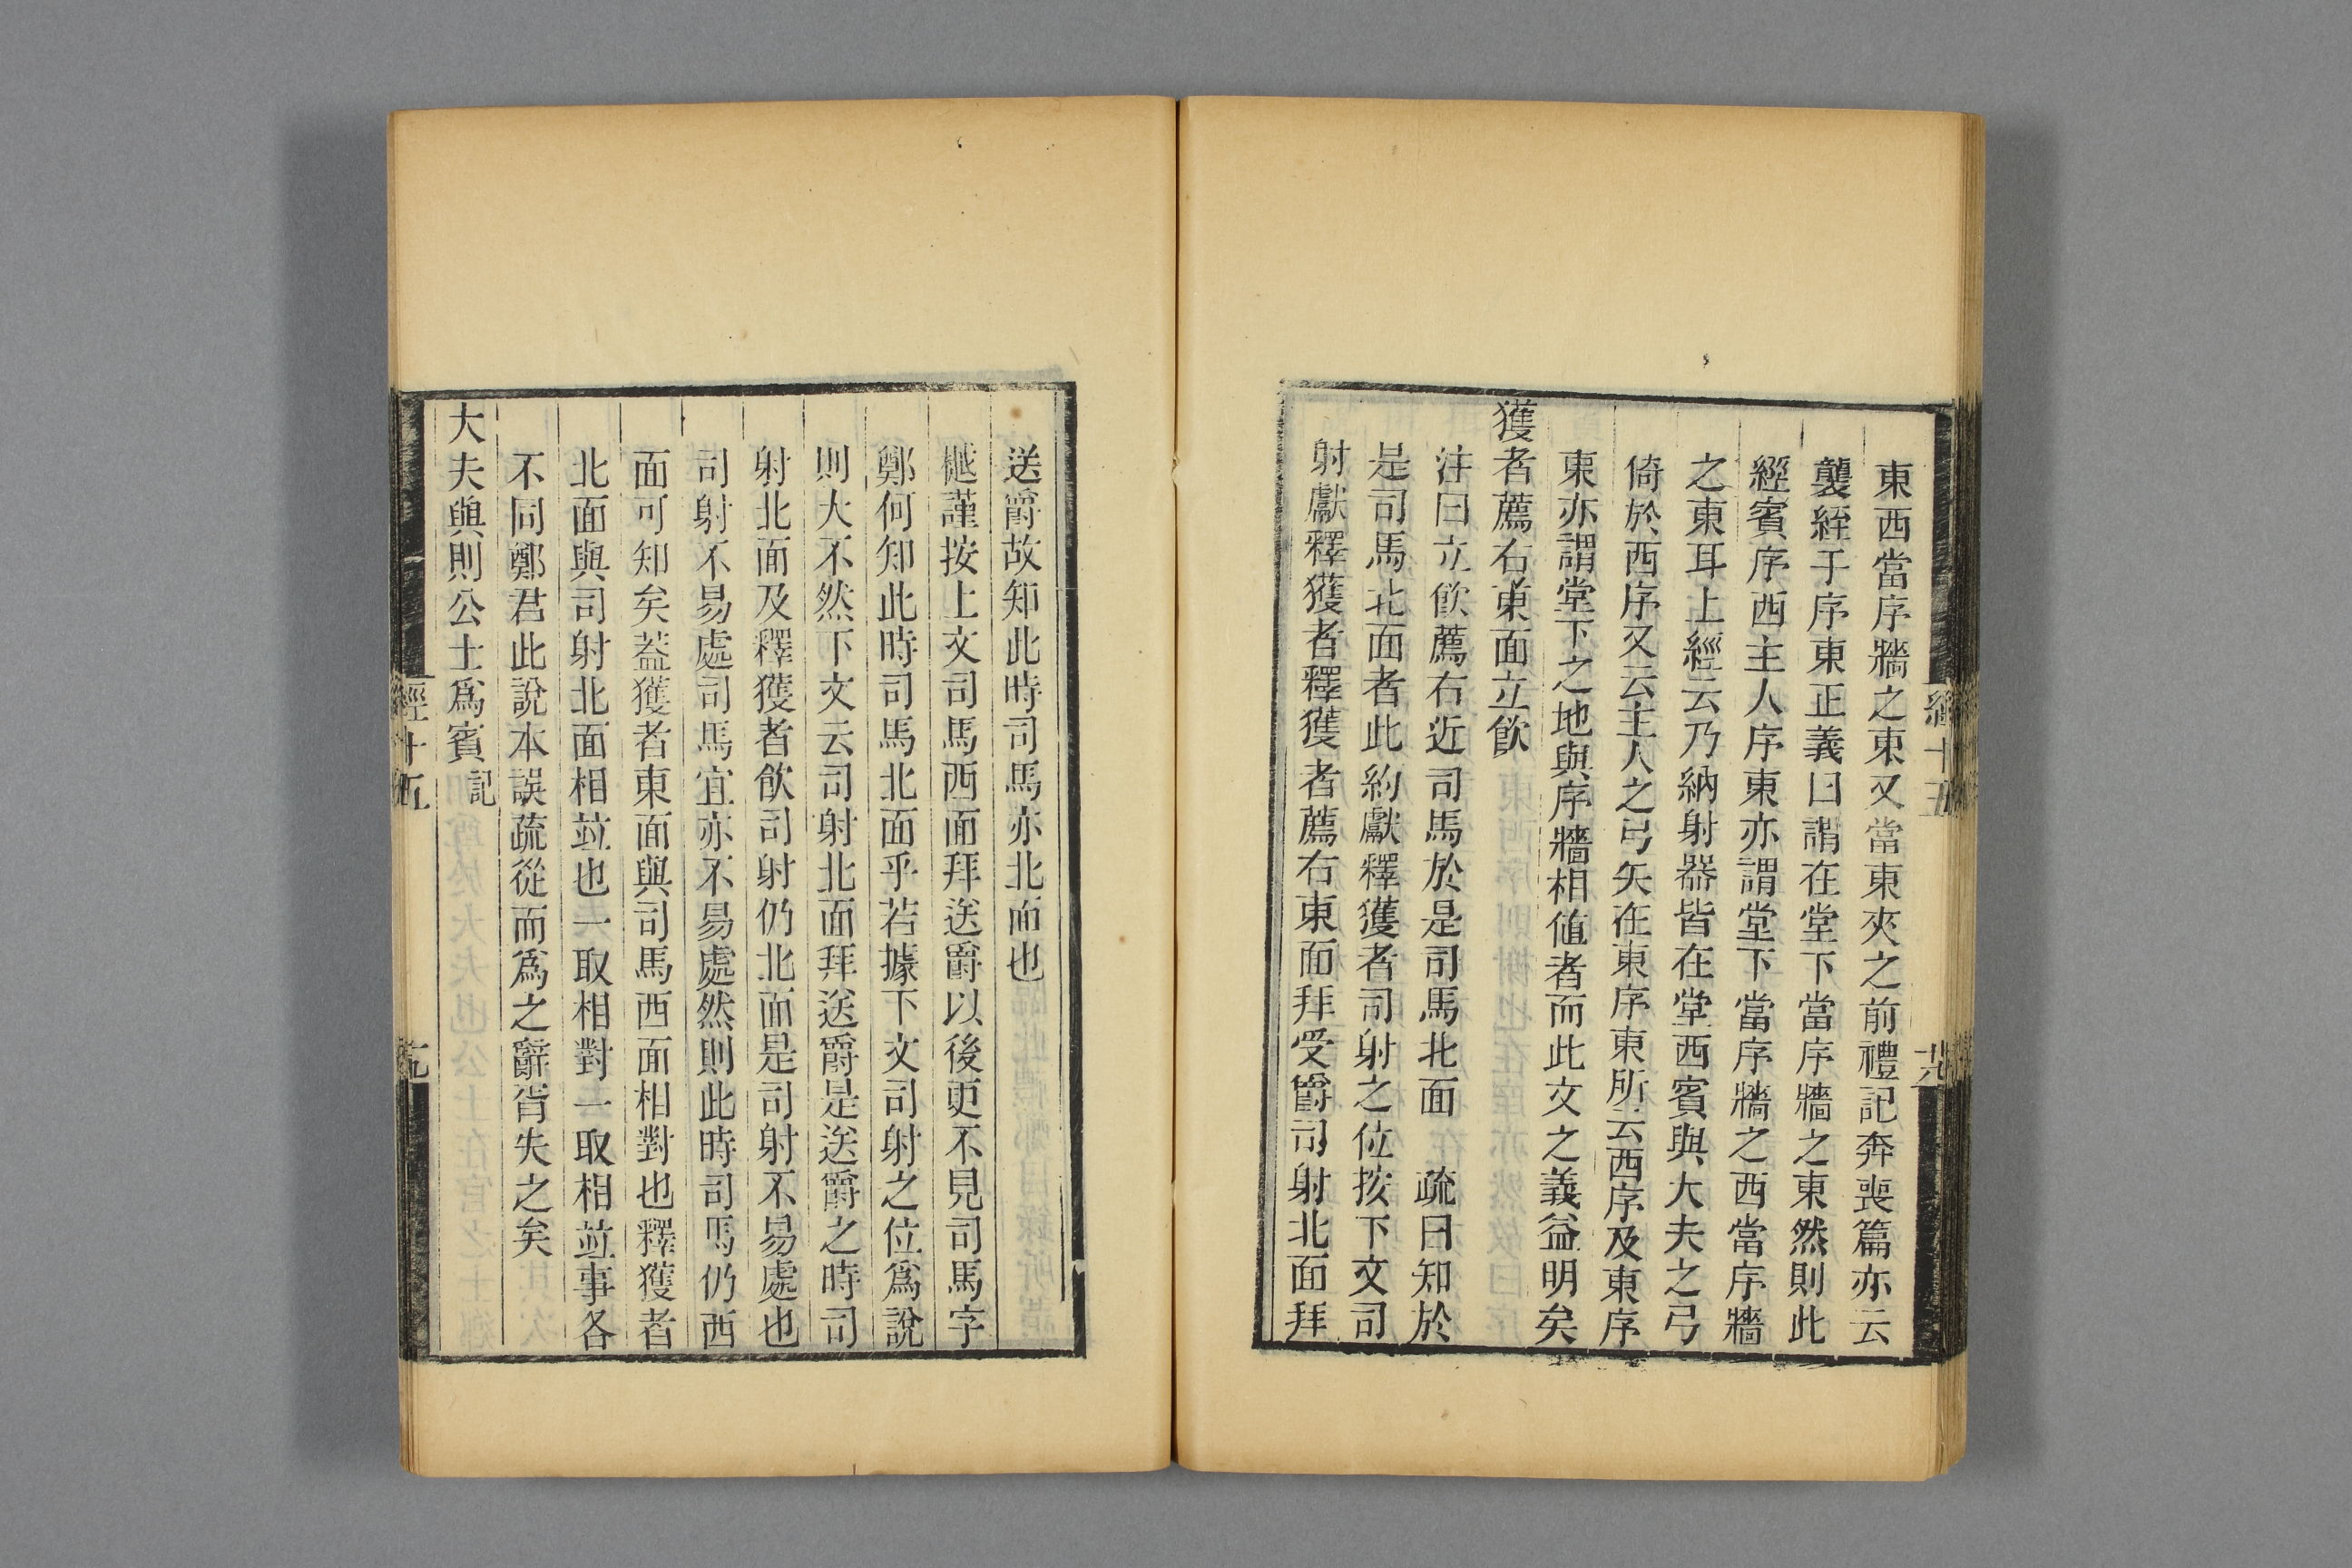 東西當序牆之東又當東夾之前禮記奔喪篇亦云
襲絰于序東正義曰謂在堂下當序牆之東然則此
經賓序西主人序東亦謂堂下當序牆之西當序牆
之東耳上經云乃納射器皆在堂西賓與大夫之弓
倚於西序又云主人之弓矢在東序東所云西序及東序
東亦謂堂下之地與序牆相値者而此文之義益明矣
獲者薦右東面立飮
注曰立飮薦右近司馬於是司馬北面 疏曰知於
是司馬北面者此約獻釋獲者司射之位按下文司
射獻釋獲者釋獲者薦右東面拜受爵司射北面拜
經十五
送爵故知此時司馬亦北面也
樾謹按上文司馬西面拜送爵以後更不見司馬字
鄭何知此時司馬北面乎若據下文司射之位爲說
則大不然下文云司射北面拜送爵是送爵之時司
射北面及釋獲者飮司射仍北面是司射不易處也
司射不易處司馬宜亦不易處然則此時司馬仍西
面可知矣葢獲者東面與司馬西面相對也釋獲者
北面與司射北面相竝也一取相對一取相竝事各
不同鄭君此說本誤疏從而爲之辭胥失之矣
大夫與則公士爲賓 記
經十五